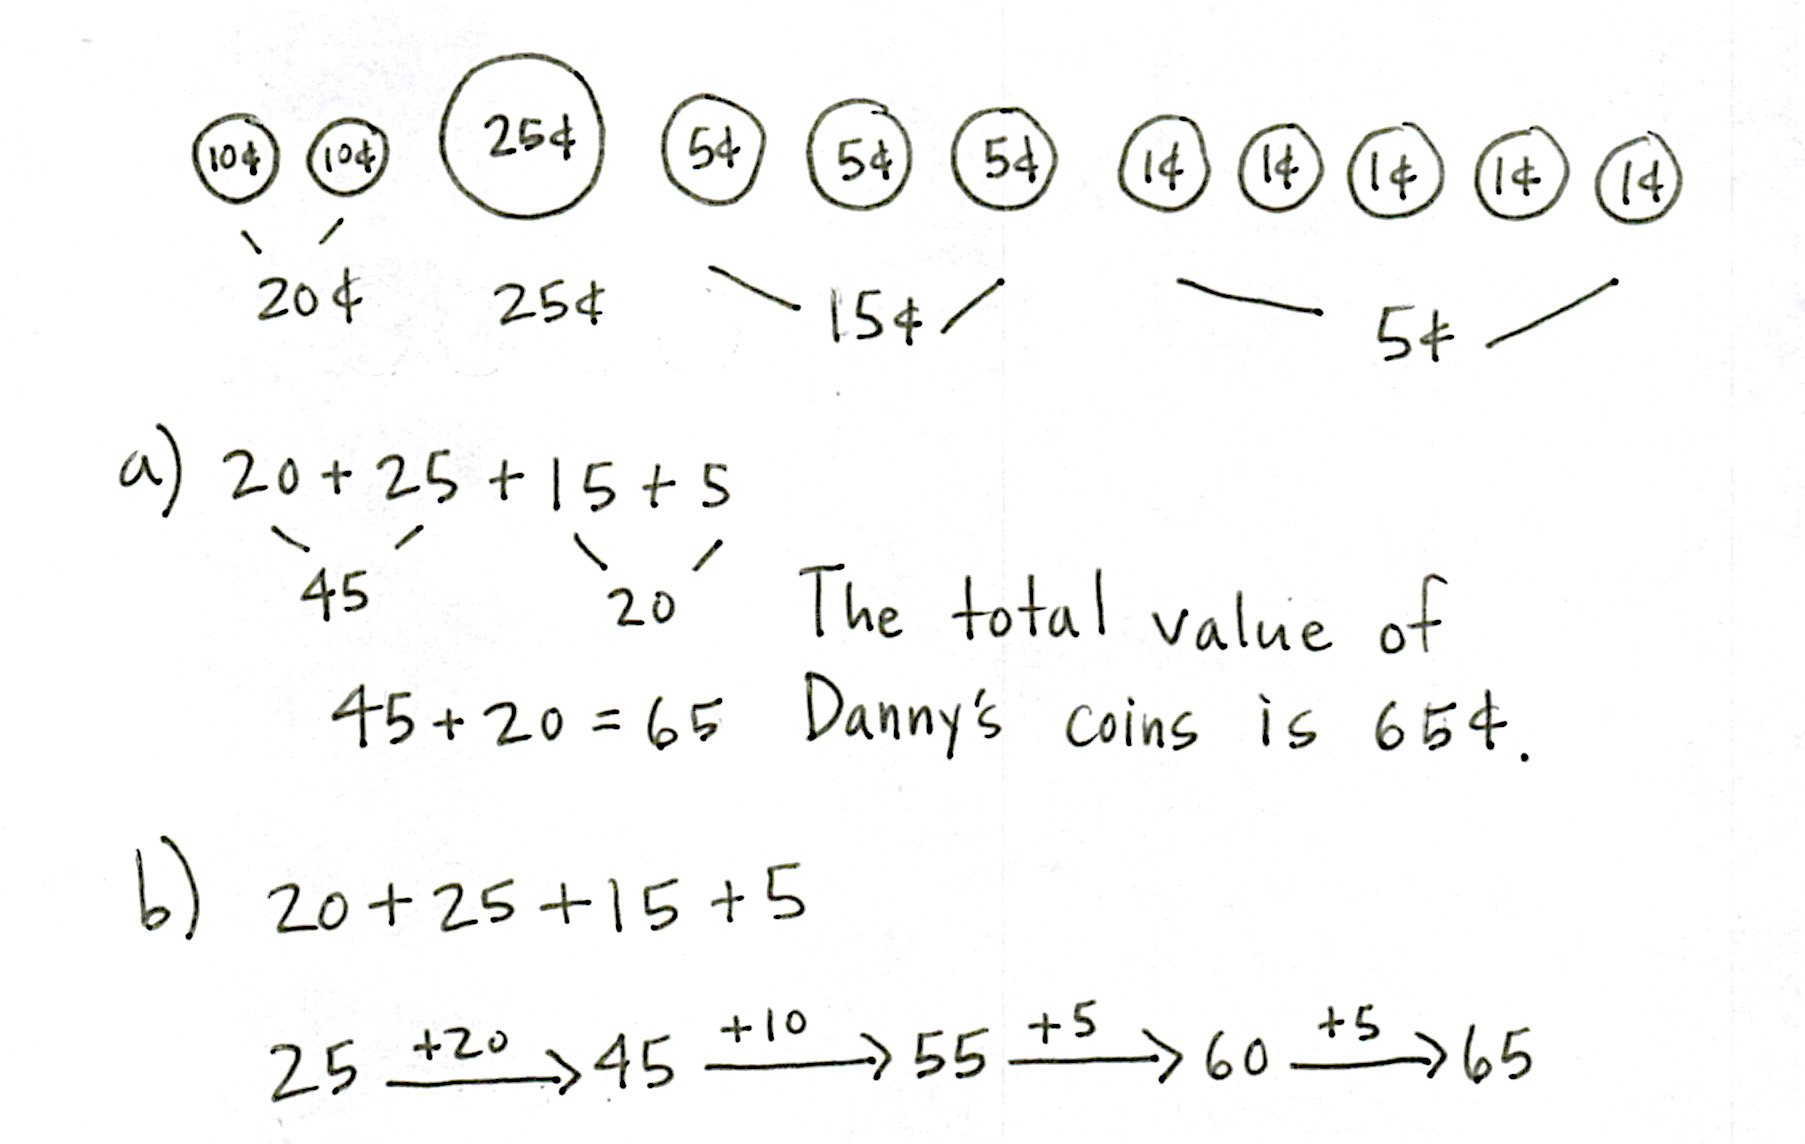 10¢ 10¢ 25¢ 5¢ 5¢ 5¢ 1¢ 1¢ 1¢ 1¢ 1¢
20¢ 25¢ 15¢ 5¢
a) 20 + 25 + 15 + 5
45 20
45 + 20 = 65
The total value of
Danny's coins is 65¢.
b) 20 + 25 + 15 + 5
25 +20 → 45 +10 → 55 +5 → 60 +5 → 65